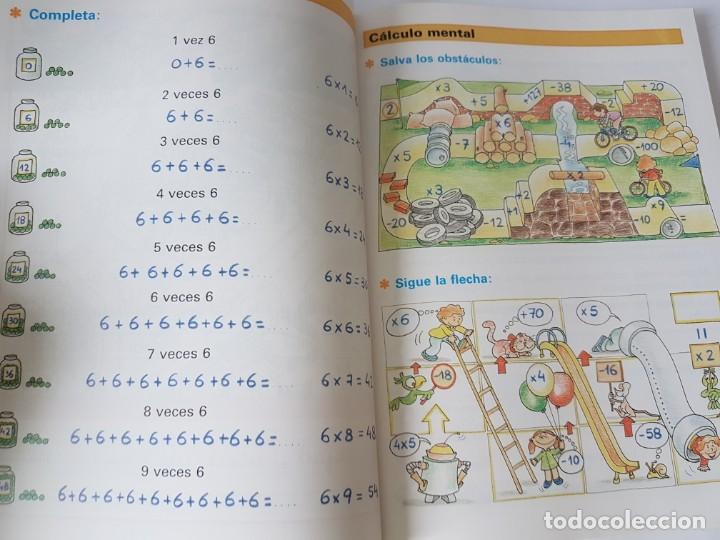 * Completa:
1 vez 6
0+6=....
6x1=6
0
2 veces 6
6+6=....
6x2=
6
3 veces 6
6+6+6=....
6x3=
12
4 veces 6
6+6+6+6=....
6x4=24
18
5 veces 6
6+6+6+6+6=....
6x5=30
24
6 veces 6
6+6+6+6+6+6=....
6x6=36
30
7 veces 6
6+6+6+6+6+6+6=....
6x7=42
36
8 veces 6
6+6+6+6+6+6+6+6=....
6x8=48
42
9 veces 6
6+6+6+6+6+6+6+6+6=....
6x9=54
48
Cálculo mental
* Salva los obstáculos:
2
x3
+5
+127
-38
-2
+20
-12
x6
-7
-4
-100
x5
x3
x2
-20
-12
+1
+2
-10
x9
7=
* Sigue la flecha:
x6
+70
x5
=
x2
-18
x4
-16
4x5
-10
-58
todocoleccion.net